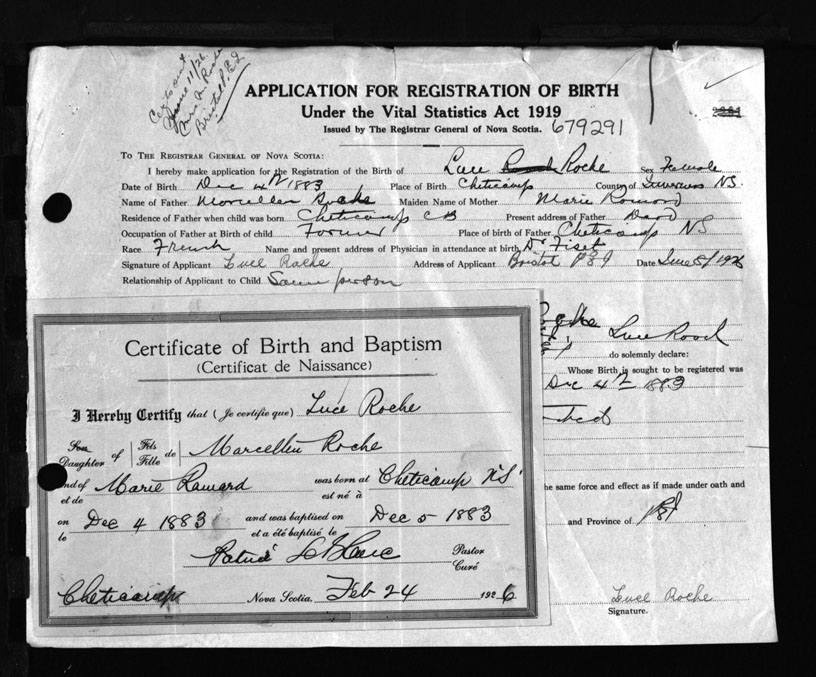 Certs out.
June 11/26
Mrs A. Roche
Bristol P.E.I
APPLICATION FOR REGISTRATION OF BIRTH
Under the Vital Statistics Act 1919
Issued by The Registrar General of Nova Scotia. 679291
TO THE REGISTRAR GENERAL OF NOVA SCOTIA:
I hereby make application for the Registration of the Birth of Luce Roche Sex Female
Date of Birth Dec 4th 1883 Place of Birth Cheticamp County of Inverness NS.
Name of Father Marcellin Roche Maiden Name of Mother Marie
Residence of Father when child was born Cheticamp CB Present address of Father Dead
Occupation of Father at Birth of child Farmer Place of birth of Father Cheticamp NS
Race French Name and present address of Physician in attendance at birth Dr Fiset
Signature of Applicant Luce Roche Address of Applicant Bristol PEI Date June 8/1926
Relationship of Applicant to Child Same person
Luce
do solemnly declare:
Whose Birth is sought to be registered was
Dec 4th 1883
he same force and effect as if made under oath and
and Province of PEI
Luce Roche
Signature.
Certificate of Birth and Baptism
(Certificat de Naissance)
I Hereby Certify that (Je certifie que) Luce Roche
Son Daughter of Fils Fille de Marcellin Roche
and of et de Marie Ramard was born at est né à Cheticamp N.S.
on le Dec 4 1883 and was baptised on et a été baptisé le Dec 5 1883
LeBlanc Pastor Curé
Cheticamp Nova Scotia. Feb 24 1926